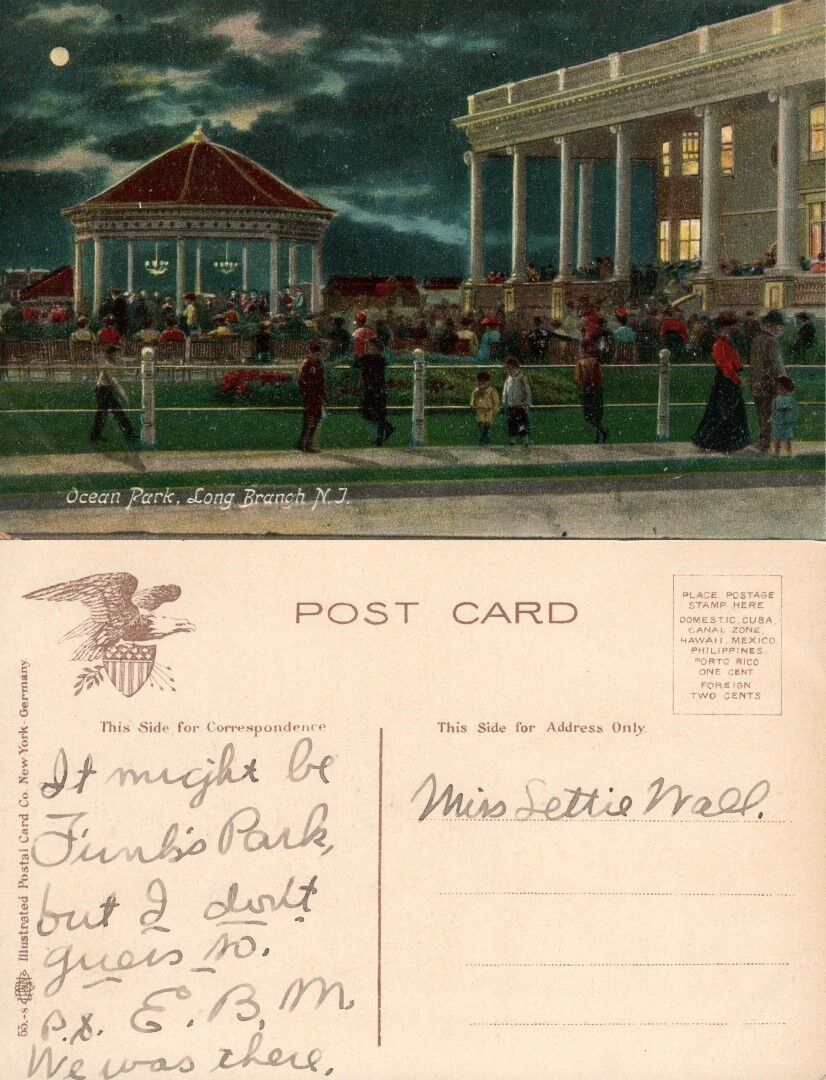 Ocean Park, Long Branch N.J.
POST CARD
PLACE POSTAGE
STAMP HERE
DOMESTIC, CUBA,
CANAL ZONE,
HAWAII, MEXICO
PHILIPPINES,
PORTO RICO
ONE CENT
FOREIGN
TWO CENTS
This Side for Correspondence
This Side for Address Only.
55.-8 Illustrated Postal Card Co. New York - Germany
It might be
Funk's Park,
but I don't
guess so.
P.S. E. B. M.
We was there.
Miss Lettie Wall.